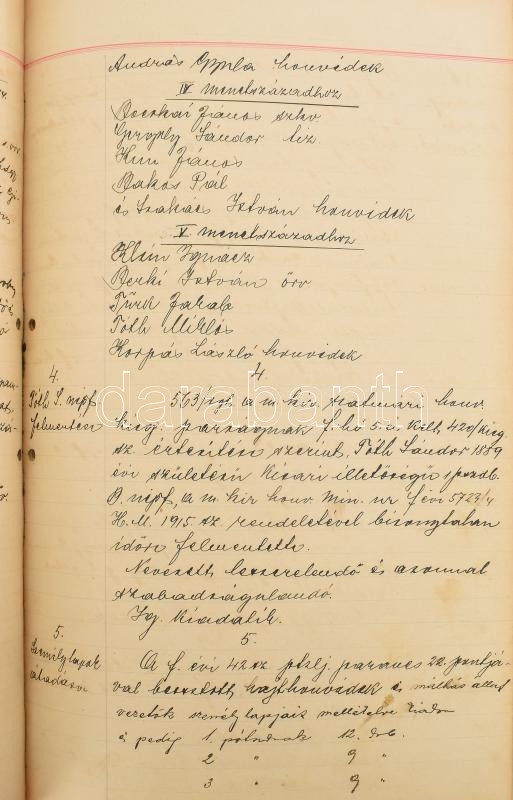 András honvédek
IV menetszázadhoz
Bocskai János
Gergely Sándor tiz.
János
Bakos Pál
és Szakács István honvédek
V menetszázadhoz
Klein Ignácz
Berki István örv
Türk Jakab
Tóth Miklós
Korpás László honvédek
4.
Tóth S. népf.
felmentése
4.
563/sgt. a m. kir. szatmári honv.
kieg. parságnak f. hó 5-én kelt 420/kieg.
sz. értesitése szerint, Tóth Sándor 1889
évi születésü illetőségü
B. népf. a m. kir honv. min. ur f. évi 5723/4
H.M. 1915. sz. rendeletével bizonytalan
időre felmentette.
Nevezett leszerelendő és azonnal
szabadságolandó.
Ig. kiadatik.
5.
Személylapok
átadása
5.
A f. évi 42 sz. ptszlj. parancs 22. pontjá-
val beosztott hajthonvédek és málhás állat
vezetők személylapjait mellékelve kiadom
és pedig 1. pótszdnak 12. drb.
2 " 9 "
3 " 9 "
darabanth